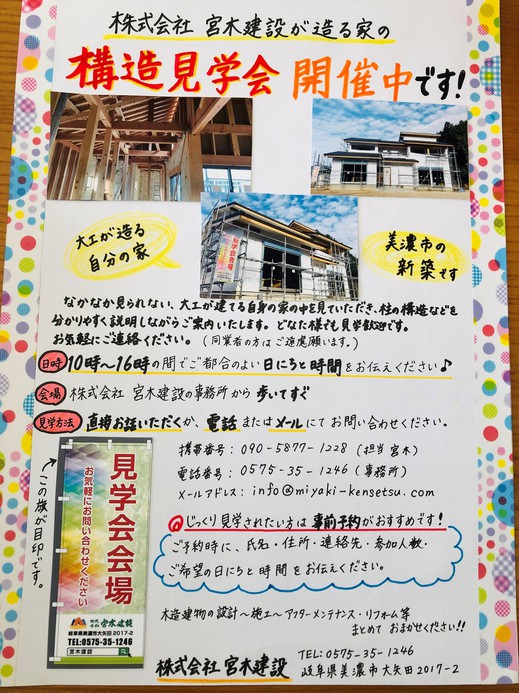 株式会社 宮木建設が造る家の
構造見学会 開催中です!
見学会会場
大工が造る
自分の家
美濃市の
新築です
なかなか見られない、大工が建てる自身の家の中を見ていただき、柱の構造などを
分かりやすく説明しながらご案内いたします。どなた様でも見学歓迎です。
お気軽にご連絡ください。(同業者の方はご遠慮願います。)
日時 10時~16時の間でご都合のよい日にちと時間をお伝えください♪
会場 株式会社 宮木建設の事務所から歩いてすぐ
見学方法 直接お話いただくか、電話またはメールにてお問い合わせください。
携帯番号: 090-5877-1228 (担当 宮木)
電話番号: 0575-35-1246 (事務所)
メールアドレス: info@miyaki-kensetsu.com
じっくり見学されたい方は事前予約がおすすめです!
ご予約時に、氏名・住所・連絡先・参加人数・
ご希望の日にちと時間をお伝えください。
この旗が目印です。
見学会会場
お気軽にお問い合わせください
株式会社 宮木建設
岐阜県美濃市大矢田2017-2
TEL:0575-35-1246
宮木建設
木造建物の設計~施工~アフターメンテナンス・リフォーム等
まとめて おまかせください!!
株式会社 宮木建設
TEL:0575-35-1246
岐阜県美濃市大矢田2017-2